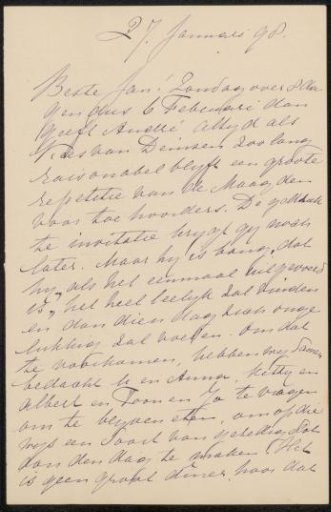 27 Januari 98.
Beste Jan! Zondag over 8 da
gen dus 6 Februari dan
geeft André altijd als
Kees van Deinsen zoolang
raisonabel blijft een groote
repetitie van de Maagden
voor toehoorders. De gedrukte
invitatie krijgt gij nog
later. Maar hij is bang, dat
hij, als het eenmaal uitgevoerd
is, het heel leelijk zal vinden
en dan dien dag zich onge
lukkig zal voelen. Om dat
te voorkomen, hebben wij samen
bedacht U en Anna, Betsy en
Albert en Toon en Jo te vragen
om te bijven eten, om op die
wijs een soort van gezellig slot
aan den dag te maken. (Het
is geen groot diner, hoor dat